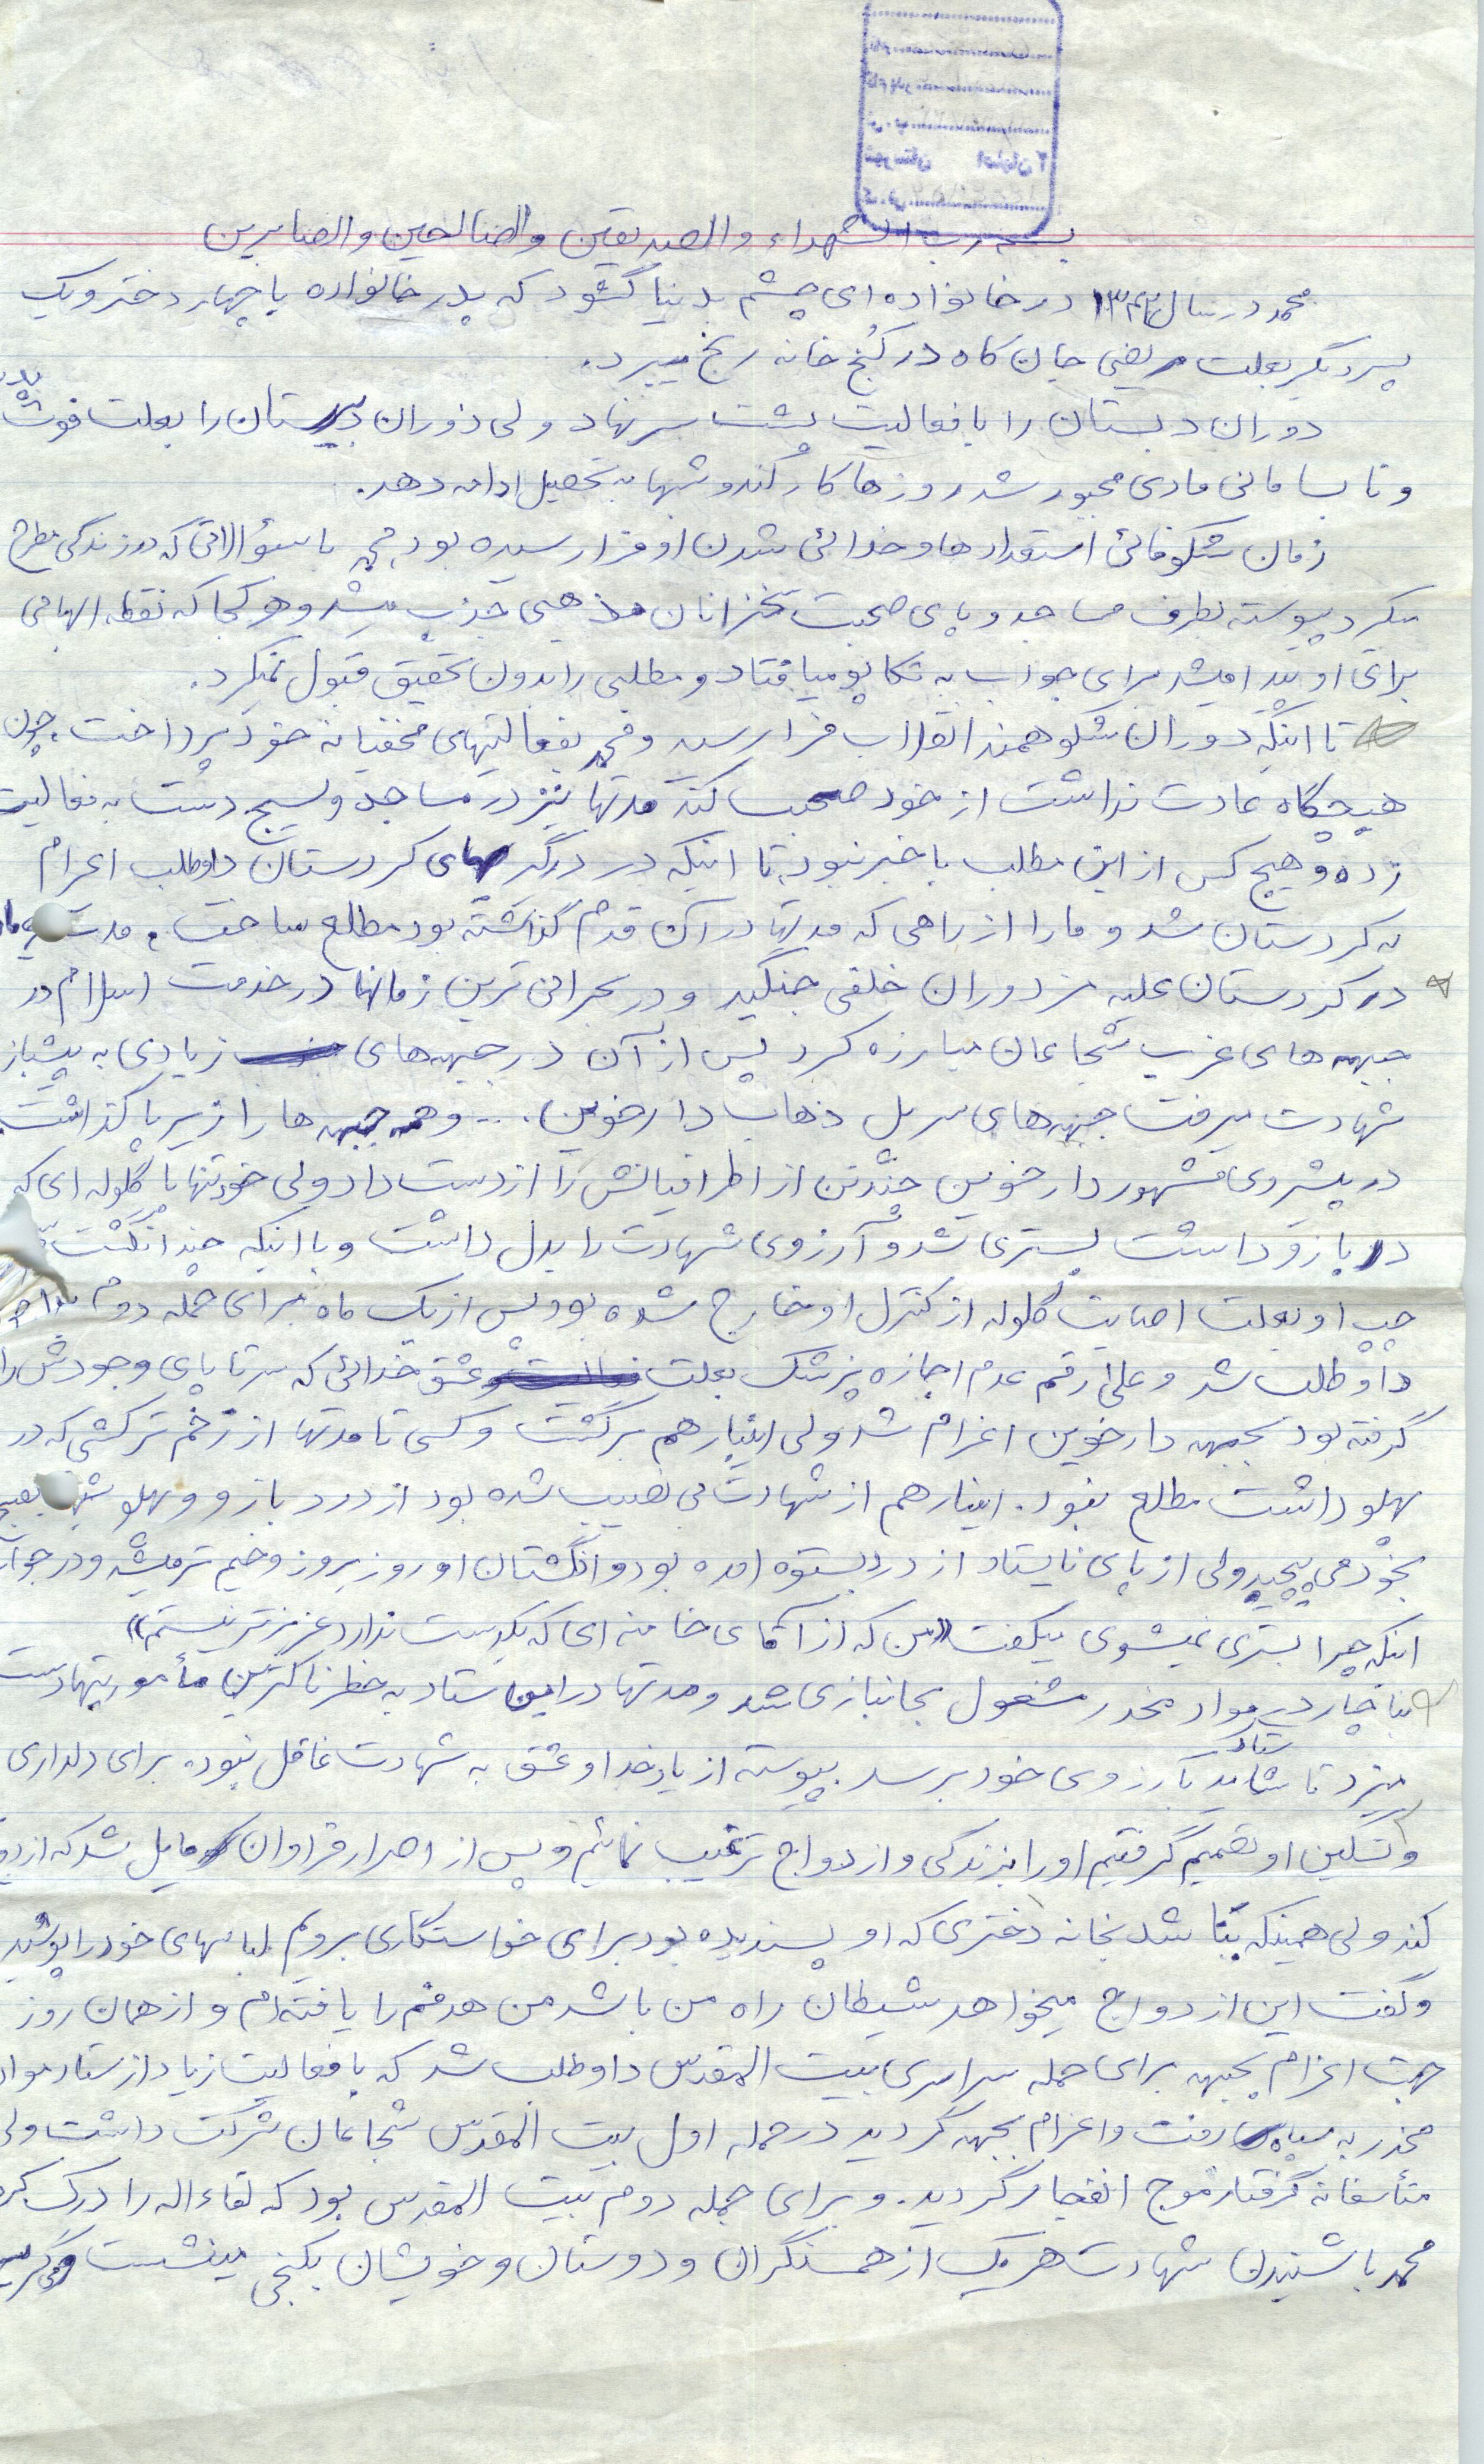 بسم رب الشهداء والصدیقین والصالحین والصابرین
محمد در سال ۱۳۴۲ در خانواده ای چشم بدنیا گشود که پدر خانواده با چهار دختر و یک
پسر دیگر بعلت مریضی جان کاه در کُنج خانه رنج میبرد.
دوران دبستان را با فعالیت پشت سر نهاد ولی دوران دبیرستان را بعلت فوت پدر
و نا بسامانی مادی مجبور شد روزها کار کند و شبها به تحصیل ادامه دهد.
زمان شکوفائی استعدادها و خدائی شدن او فرا رسیده بود محمد با سؤالاتی که در زندگی مطرح
میکرد پیوسته بطرف مساجد و پای صحبت سخنرانان مذهبی جذب میشد و هر کجا که نقطه ابهامی
برای او پیدا میشد برای جواب به تکاپو میافتاد و مطلبی را بدون تحقیق قبول نمیکرد.
تا اینکه دوران شکوهمند انقلاب فرا رسید و محمد بفعالیتهای مخفیانه خود پرداخت، چون
هیچگاه عادت نداشت از خود صحبت کند مدتها نیز در مساجد و بسیج دست به فعالیت
زده و هیچ کس از این مطلب با خبر نبود تا اینکه در درگیریهای کردستان داوطلب اعزام
به کردستان شد و ما را از راهی که مدتها در آن قدم گذاشته بود مطلع ساخت. مدت ماه
در کردستان علیه مزدوران خلقی جنگید و در بحرانی ترین زمانها در خدمت اسلام در
جبهه های غرب شجاعان مبارزه کرد پس از آن در جبهه های زیادی به پیشباز
شهادت میرفت جبهه های سر پل ذهاب دارخوین ... و همه جبهه ها را زیر پا گذاشت
در پیشروی مشهور دارخوین چند تن از اطرافیانش را از دست داد ولی خود تنها با گلوله ای که
در بازو داشت بستری شد و آرزوی شهادت را بدل داشت و با اینکه چند انگشت
چپ او بعلت اصابت گلوله از کنترل او خارج شده بود پس از یک ماه برای حمله دوم
داوطلب شد و علی ارقم عدم اجازه پزشک بعلت عشق خدائی که سر تا پای وجودش را
گرفته بود بجبهه دارخوین اعزام شد ولی اینبار هم برگشت و کسی تا مدتها از زخم ترکشی که در
پهلو داشت مطلع نبود. اینبار هم از شهادت بی نصیب شده بود از درد بازو و پهلو
بخود می پیچید ولی از پای نایستاد از درد بستوه امده بود و انگشتان او روز بروز وخیم تر میشد و در جواب
اینکه چرا بستری نمیشوی میگفت «من که از آقای خامنه ای که یکدست ندارد عزیزتر نیستم»
بناچار در ستاد مواد مخدر مشغول بجانبازی شد و مدتها در این ستاد به خطرناکترین مأموریتها دست
میزد تا شاید بآرزوی خود برسد. پیوسته از یاد خدا و عشق به شهادت غافل نبوده برای دلداری
و تسکین او تصمیم گرفتیم او را بزندگی و ازدواج ترغیب نمائیم و پس از اصرار فراوان مایل شد که ازدواج
کند ولی همینکه بنا شد بخانه دختری که او پسندیده بود برای خواستگاری برویم لباسهای خود را پوشید
و گفت این ازدواج میخواهد شیطان راه من باشد من هدفم را یافته ام و از همان روز
جهت اعزام بجبهه برای حمله سراسری بیت المقدس داوطلب شد که با فعالیت زیاد از ستاد مواد
مخدر به سپاه رفت و اعزام بجبهه گردید در حمله اول بیت المقدس شجاعان شرکت داشت ولی
متأسفانه گرفتار موج انفجار گردید. و برای حمله دوم بیت المقدس بود که لقاء اله را درک کرد
محمد با شنیدن شهادت هر یک از همسنگران و دوستان و خویشان بکنجی مینشست و میگریست